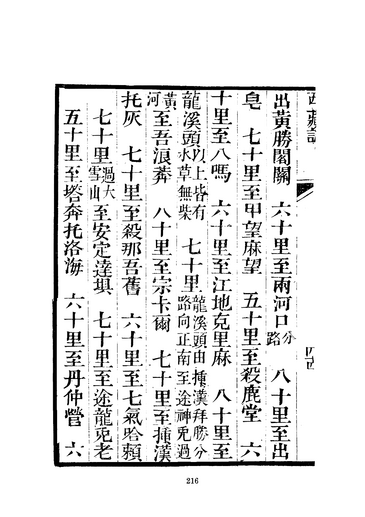 西藏
出黃勝閣關　六十里至兩河口分路　八十里至出
皂　七十里至甲望麻望　五十里至殺鹿堂　六
十里至八嗎　六十里至江地克里麻　八十里至
龍溪頭以上皆有水草無柴　七十里龍溪頭由揷漢拜勝分路向正南至途神兎過
黃河至吾浪莽　八十里至宗卡爾　七十里至揷漢
托灰　七十里至殺那吾舊　六十里至七氣哈賴
七十里過大雪山至安定達壩　七十里至途龍兎老
五十里至塔奔托洛海　六十里至丹仲營　六
216